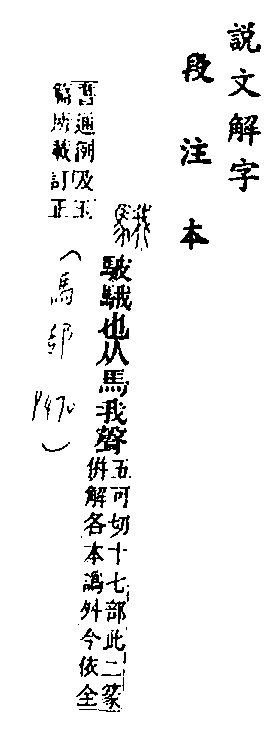 說文解字
段注本
騀 駊騀也从馬我聲
五可切十七部此二篆
併解各本譌舛今依全
書通例及玉
篇所載訂正
(馬部 P470)